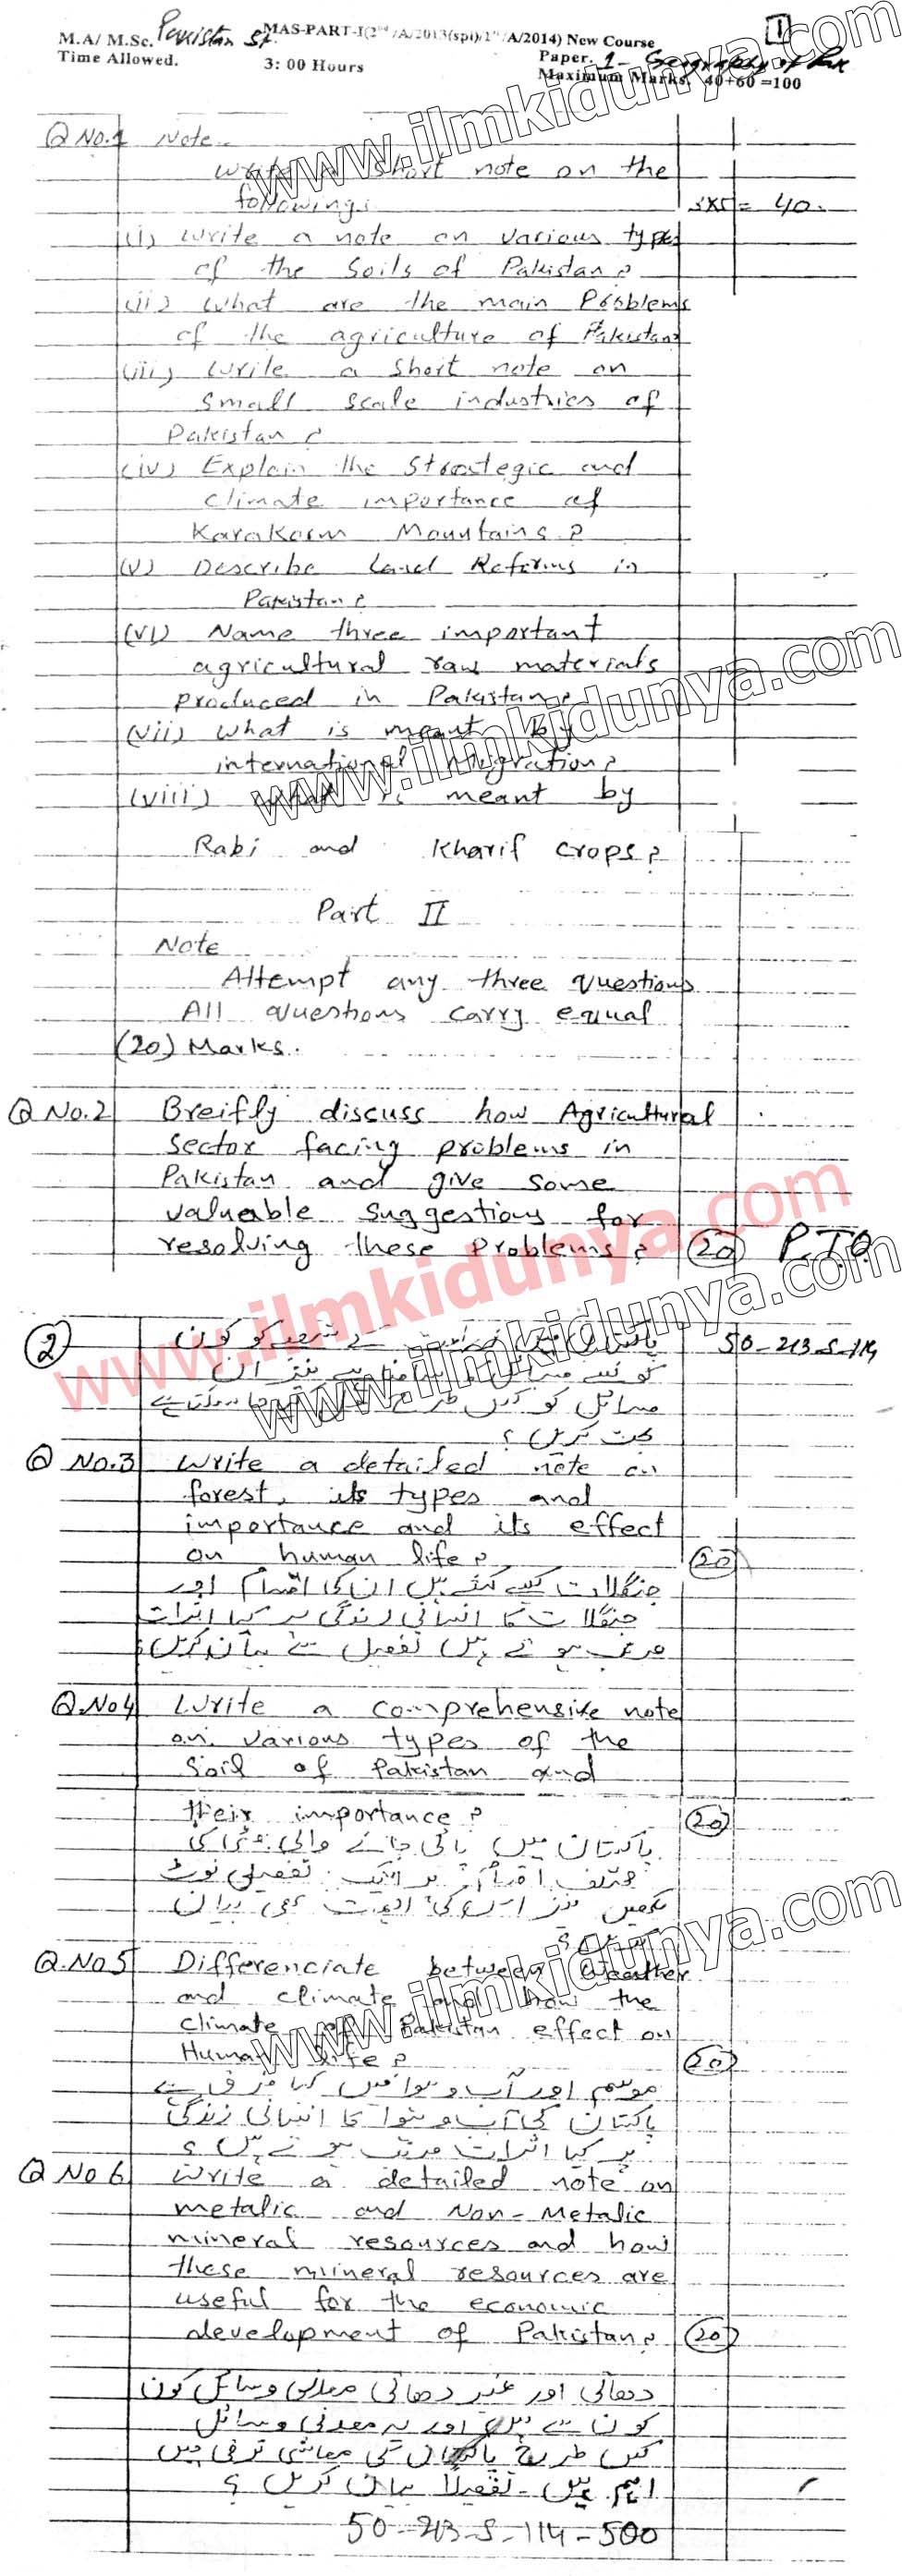 M.A/ M.Sc. Pakistan St. MAS-PART-I(2nd/A/2013(spl)/1st/A/2014) New Course
1
Time Allowed. 3: 00 Hours
Paper. 1- Geography of Pak
Maximum Marks. 40+60 =100
Q No.1 Note.
Write a short note on the
followings = 40.
(i) Write a note on various types
of the Soils of Pakistan?
(ii) What are the main Problems
of the agriculture of Pakistan?
(iii) Write a Short note on
Small Scale industries of
Pakistan?
(iv) Explain the Strategic and
Climate importance of
Karakorm Mountains?
(v) Describe Land Reforms in
Pakistan?
(vi) Name three important
agricultural raw materials
produced in Pakistan?
(vii) What is meant by
international migration?
(viii) What is meant by
Rabi and Kharif Crops?
Part II
Note
Attempt any three questions
All questions carry equal
(20) Marks.
Q No.2 Breifly discuss how Agricultural
Sector facing problems in
Pakistan and give some
valuable suggestions for
resolving these problems? (20) P.T.O
(2) 50-213-S-114
کو کون
نیز ان
مسائل کو کس طرح
بحث کریں؟
Q No.3 Write a detailed note on
forest, its types and
importance and its effect
on human life? (20)
جنگلات کسے کہتے ہیں ان کی اقسام اور
جنگلات کا انسانی زندگی پر کیا اثرات
مرتب ہوتے ہیں تفصیل سے بیان کریں؟
Q.No4 Write a comprehensive note
on various types of the
Soil of Pakistan and
their importance? (20)
پاکستان میں پائی جانے والی مٹی کی
مختلف اقسام پر ایک تفصیلی نوٹ
لکھیں نیز اس کی اہمیت بھی بیان
Q.No5 Differenciate between Weather
and climate and how the
climate of Pakistan effect on
Human life? (20)
موسم اور آب و ہوا میں کیا فرق ہے
پاکستان کی آب و ہوا کا انسانی زندگی
پر کیا اثرات مرتب ہوتے ہیں؟
Q No6 Write a detailed note on
metalic and Non-Metalic
mineral resources and how
these mineral resources are
useful for the economic
development of Pakistan? (20)
دھاتی اور غیر دھاتی معدنی وسائل کون
کون سے ہیں اور یہ معدنی وسائل
کس طرح پاکستان کی معاشی ترقی میں
اہم ہیں۔ تفصیلاً بیان کریں؟
50-213-S-114-500
www.ilmkidunya.com
www.ilmkidunya.com
www.ilmkidunya.com
www.ilmkidunya.com
www.ilmkidunya.com